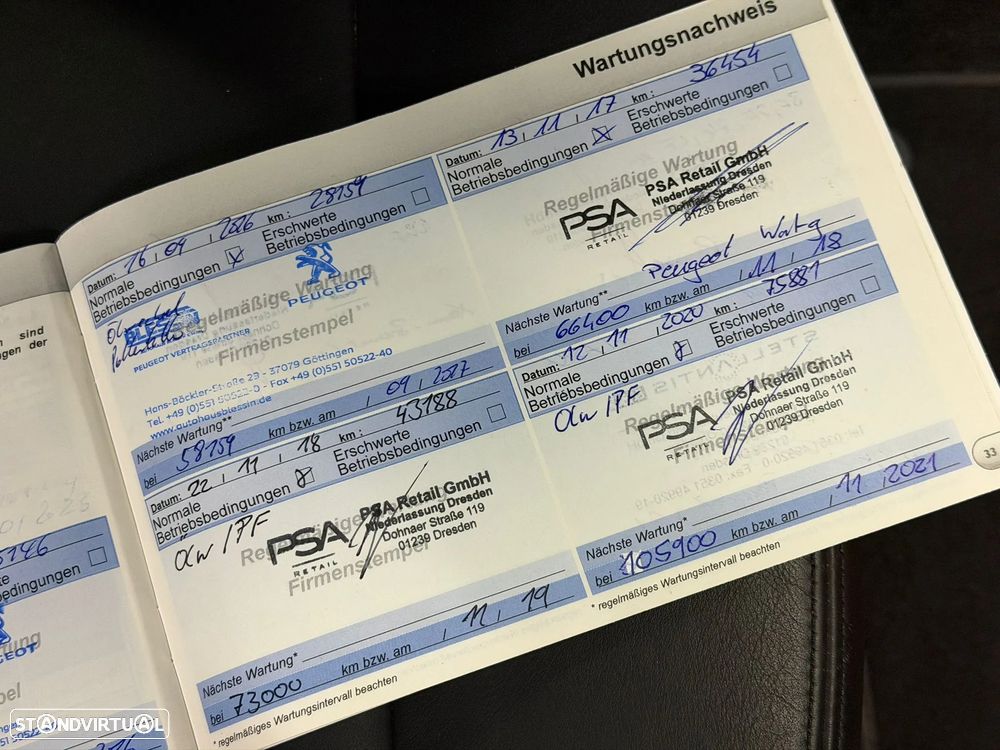 Wartungsnachweis
Datum: 16, 09, 2016 km: 28159
Normale Betriebsbedingungen
Erschwerte Betriebsbedingungen
Regelmäßige Wartung
Firmenstempel
PEUGEOT
PEUGEOT VERTRAGSPARTNER
Hans-Böckler-Straße 23 - 37079 Göttingen
Tel. +49 (0)551 50522-0 - Fax +49 (0)551 50522-40
www.autohausblessin.de
Nächste Wartung**
bei 58159 km bzw. am 09, 2017
Datum: 22, 11, 18 km: 43188
Normale Betriebsbedingungen
Erschwerte Betriebsbedingungen
ölw / PF
PSA
RETAIL
PSA Retail GmbH
Niederlassung Dresden
Dohnaer Straße 119
01239 Dresden
Firmenstempel
Nächste Wartung*
bei 73000 km bzw. am 11, 19
* regelmäßiges Wartungsintervall beachten
Datum: 13, 11, 17 km: 36454
Normale Betriebsbedingungen
Erschwerte Betriebsbedingungen
Regelmäßige Wartung
Firmenstempel
PSA
RETAIL
PSA Retail GmbH
Niederlassung Dresden
Dohnaer Straße 119
01239 Dresden
Peugeot
Nächste Wartung**
bei 66400 km bzw. am 11, 18
Datum: 12, 11, 2020 km: 75881
Normale Betriebsbedingungen
Erschwerte Betriebsbedingungen
ölw / PF
Regelmäßige Wartung
Firmenstempel
PSA
RETAIL
PSA Retail GmbH
Niederlassung Dresden
Dohnaer Straße 119
01239 Dresden
Nächste Wartung*
bei 105900 km bzw. am 11, 2021
* regelmäßiges Wartungsintervall beachten
33
sind
gen der
STANDVIRTUAL